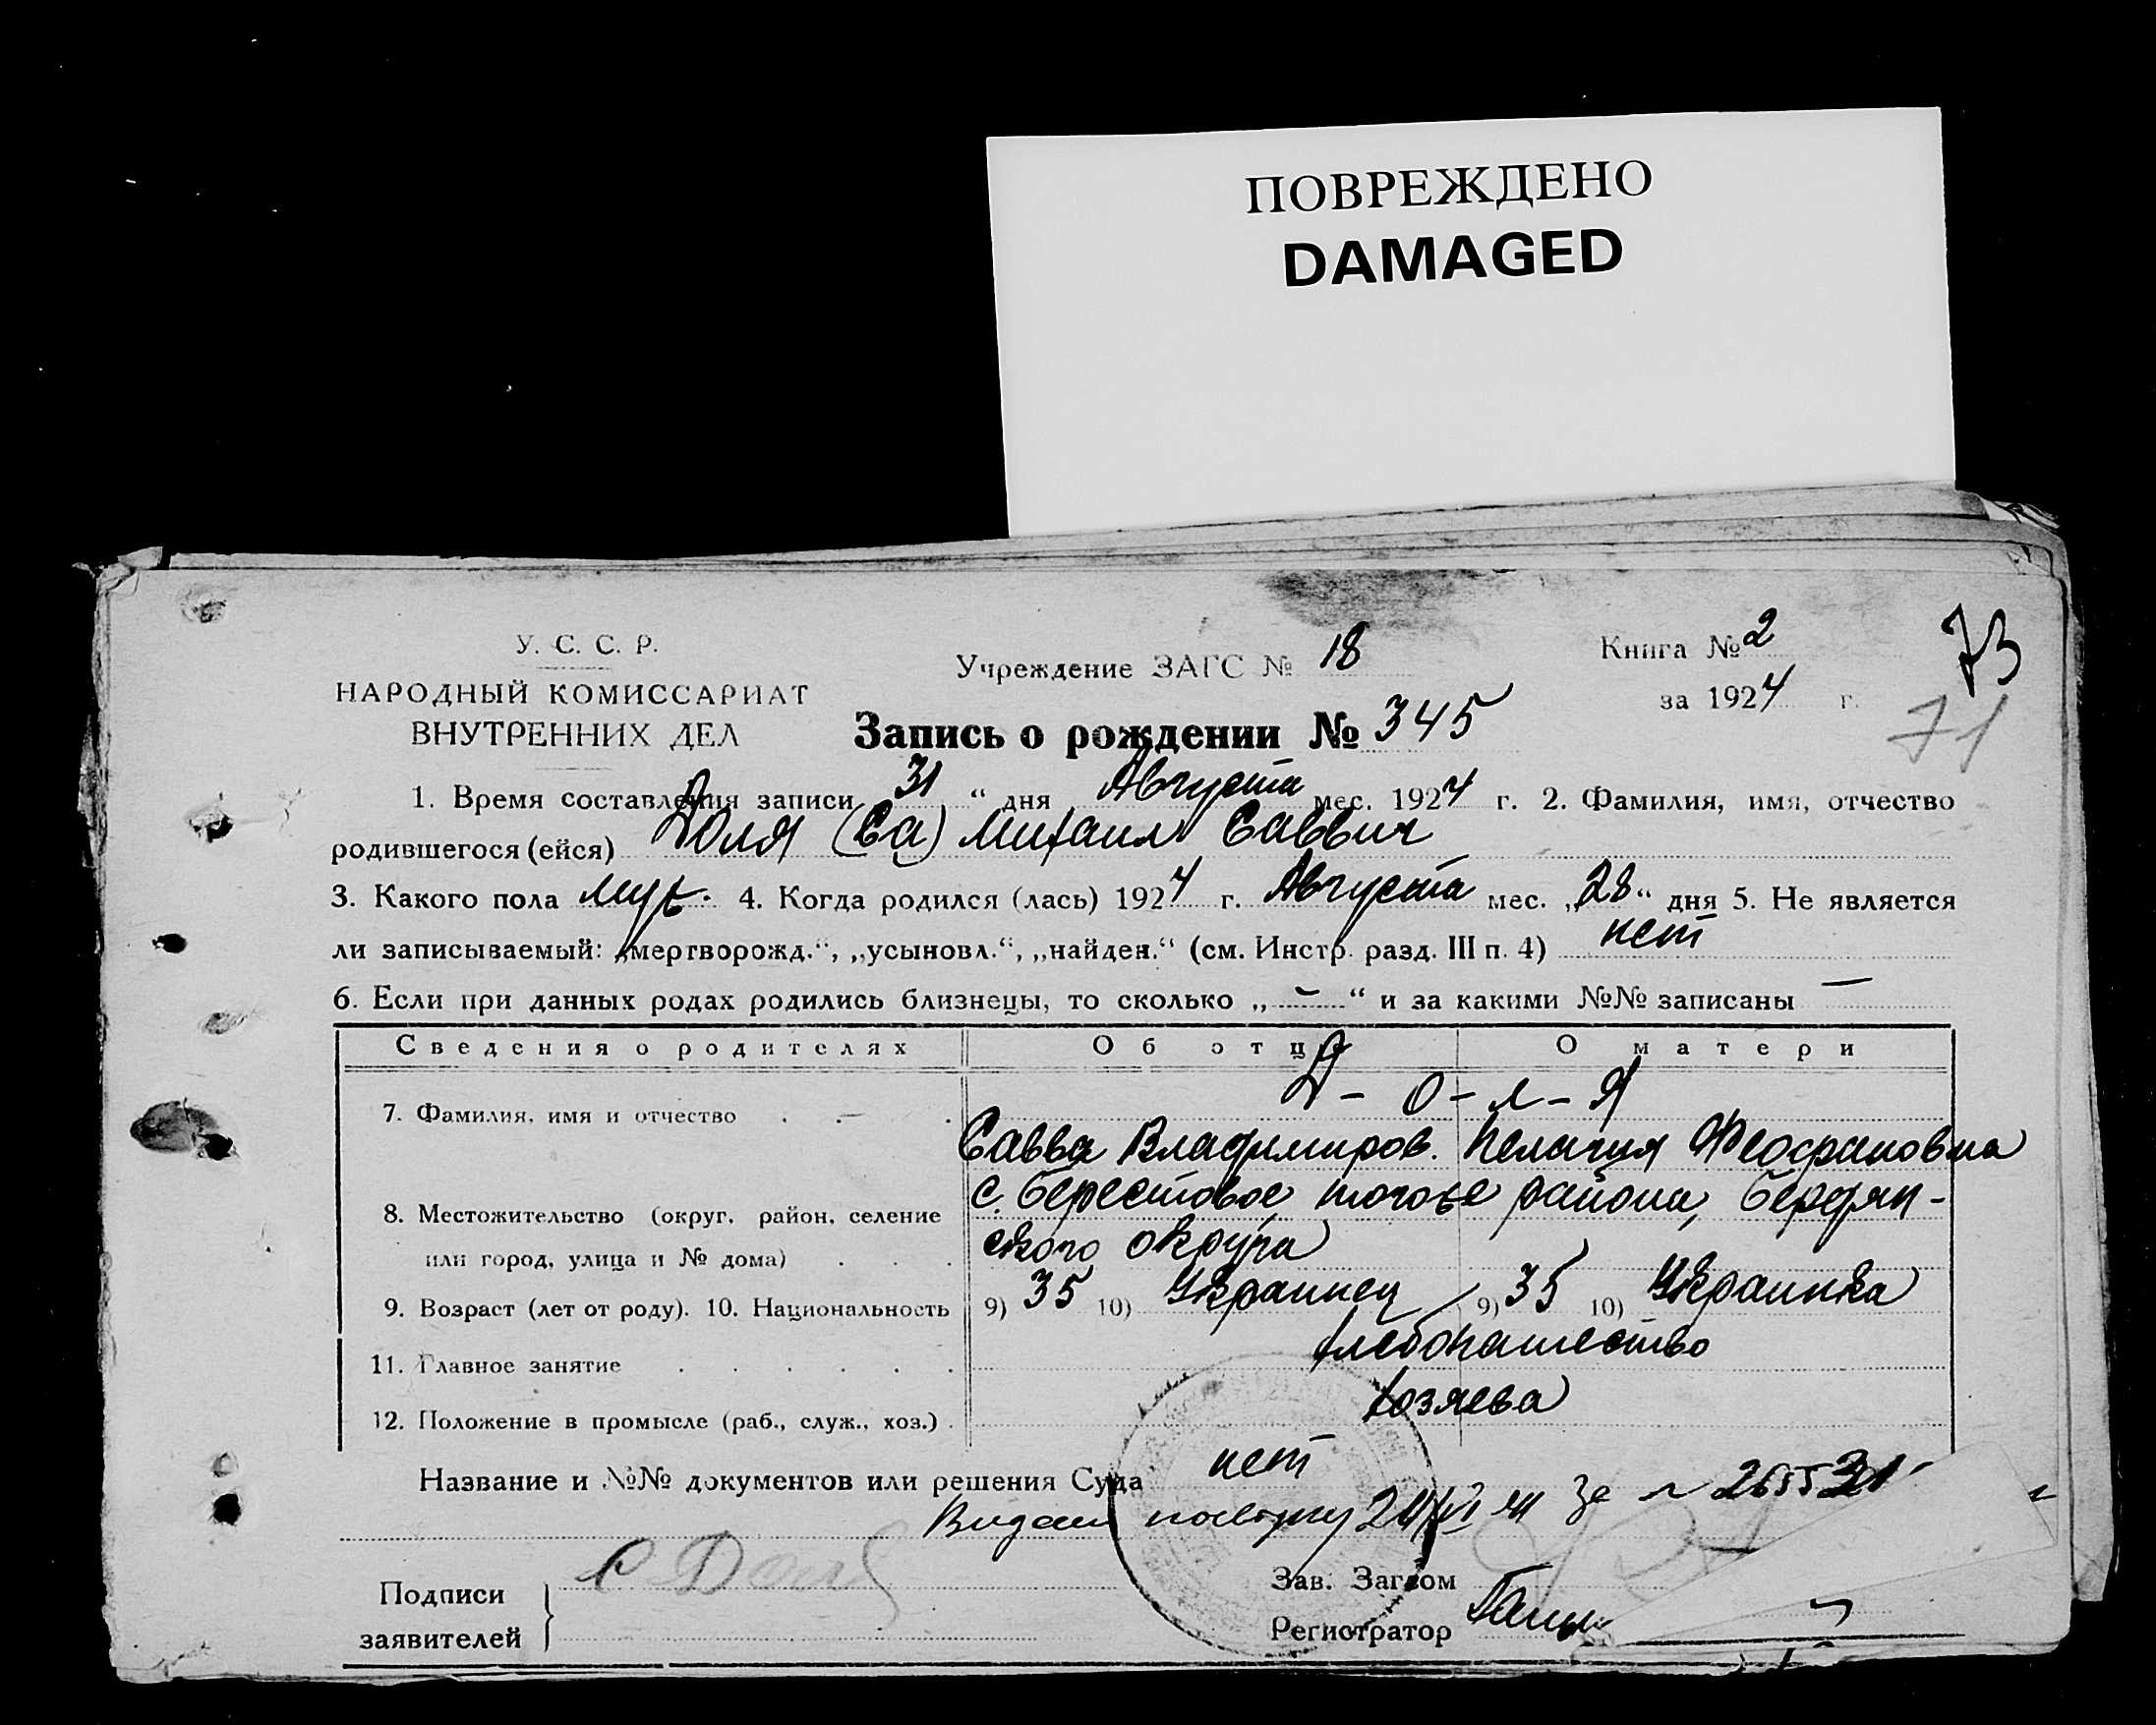 ПОВРЕЖДЕНО
DAMAGED
У. С. С. Р.
НАРОДНЫЙ КОМИССАРИАТ
ВНУТРЕННИХ ДЕЛ
Учреждение ЗАГС № 18
Книга № 2
за 1924 г.
73
71
Запись о рождении № 345
1. Время составления записи 31 “ дня Августа мес. 1924 г. 2. Фамилия, имя, отчество
родившегося (ейся) Доля (Са) Михаил Саввич
3. Какого пола муж. 4. Когда родился (лась) 1924 г. Августа мес. „28“ дня 5. Не является
ли записываемый: „мертворожд.“, „усыновл.“, „найден.“ (см. Инстр. разд. III п. 4) нет
6. Если при данных родах родились близнецы, то сколько „ - “ и за какими №№ записаны —
Сведения о родителях Об отце О матери
7. Фамилия, имя и отчество Д - о - л - я
Савва Владимиров. Пелагия Феофановна
8. Местожительство (округ, район, селение с. Берестовое, того же района, Бердян-
или город, улица и № дома) ского округа
9. Возраст (лет от роду). 10. Национальность 9) 35 10) Украинец 9) 35 10) Украинка
11. Главное занятие хлебопашество
12. Положение в промысле (раб., служ., хоз.) хозяева
Название и №№ документов или решения Суда нет
за
Подписи
заявителей
С Доля
Зав. Загсом
Регистратор